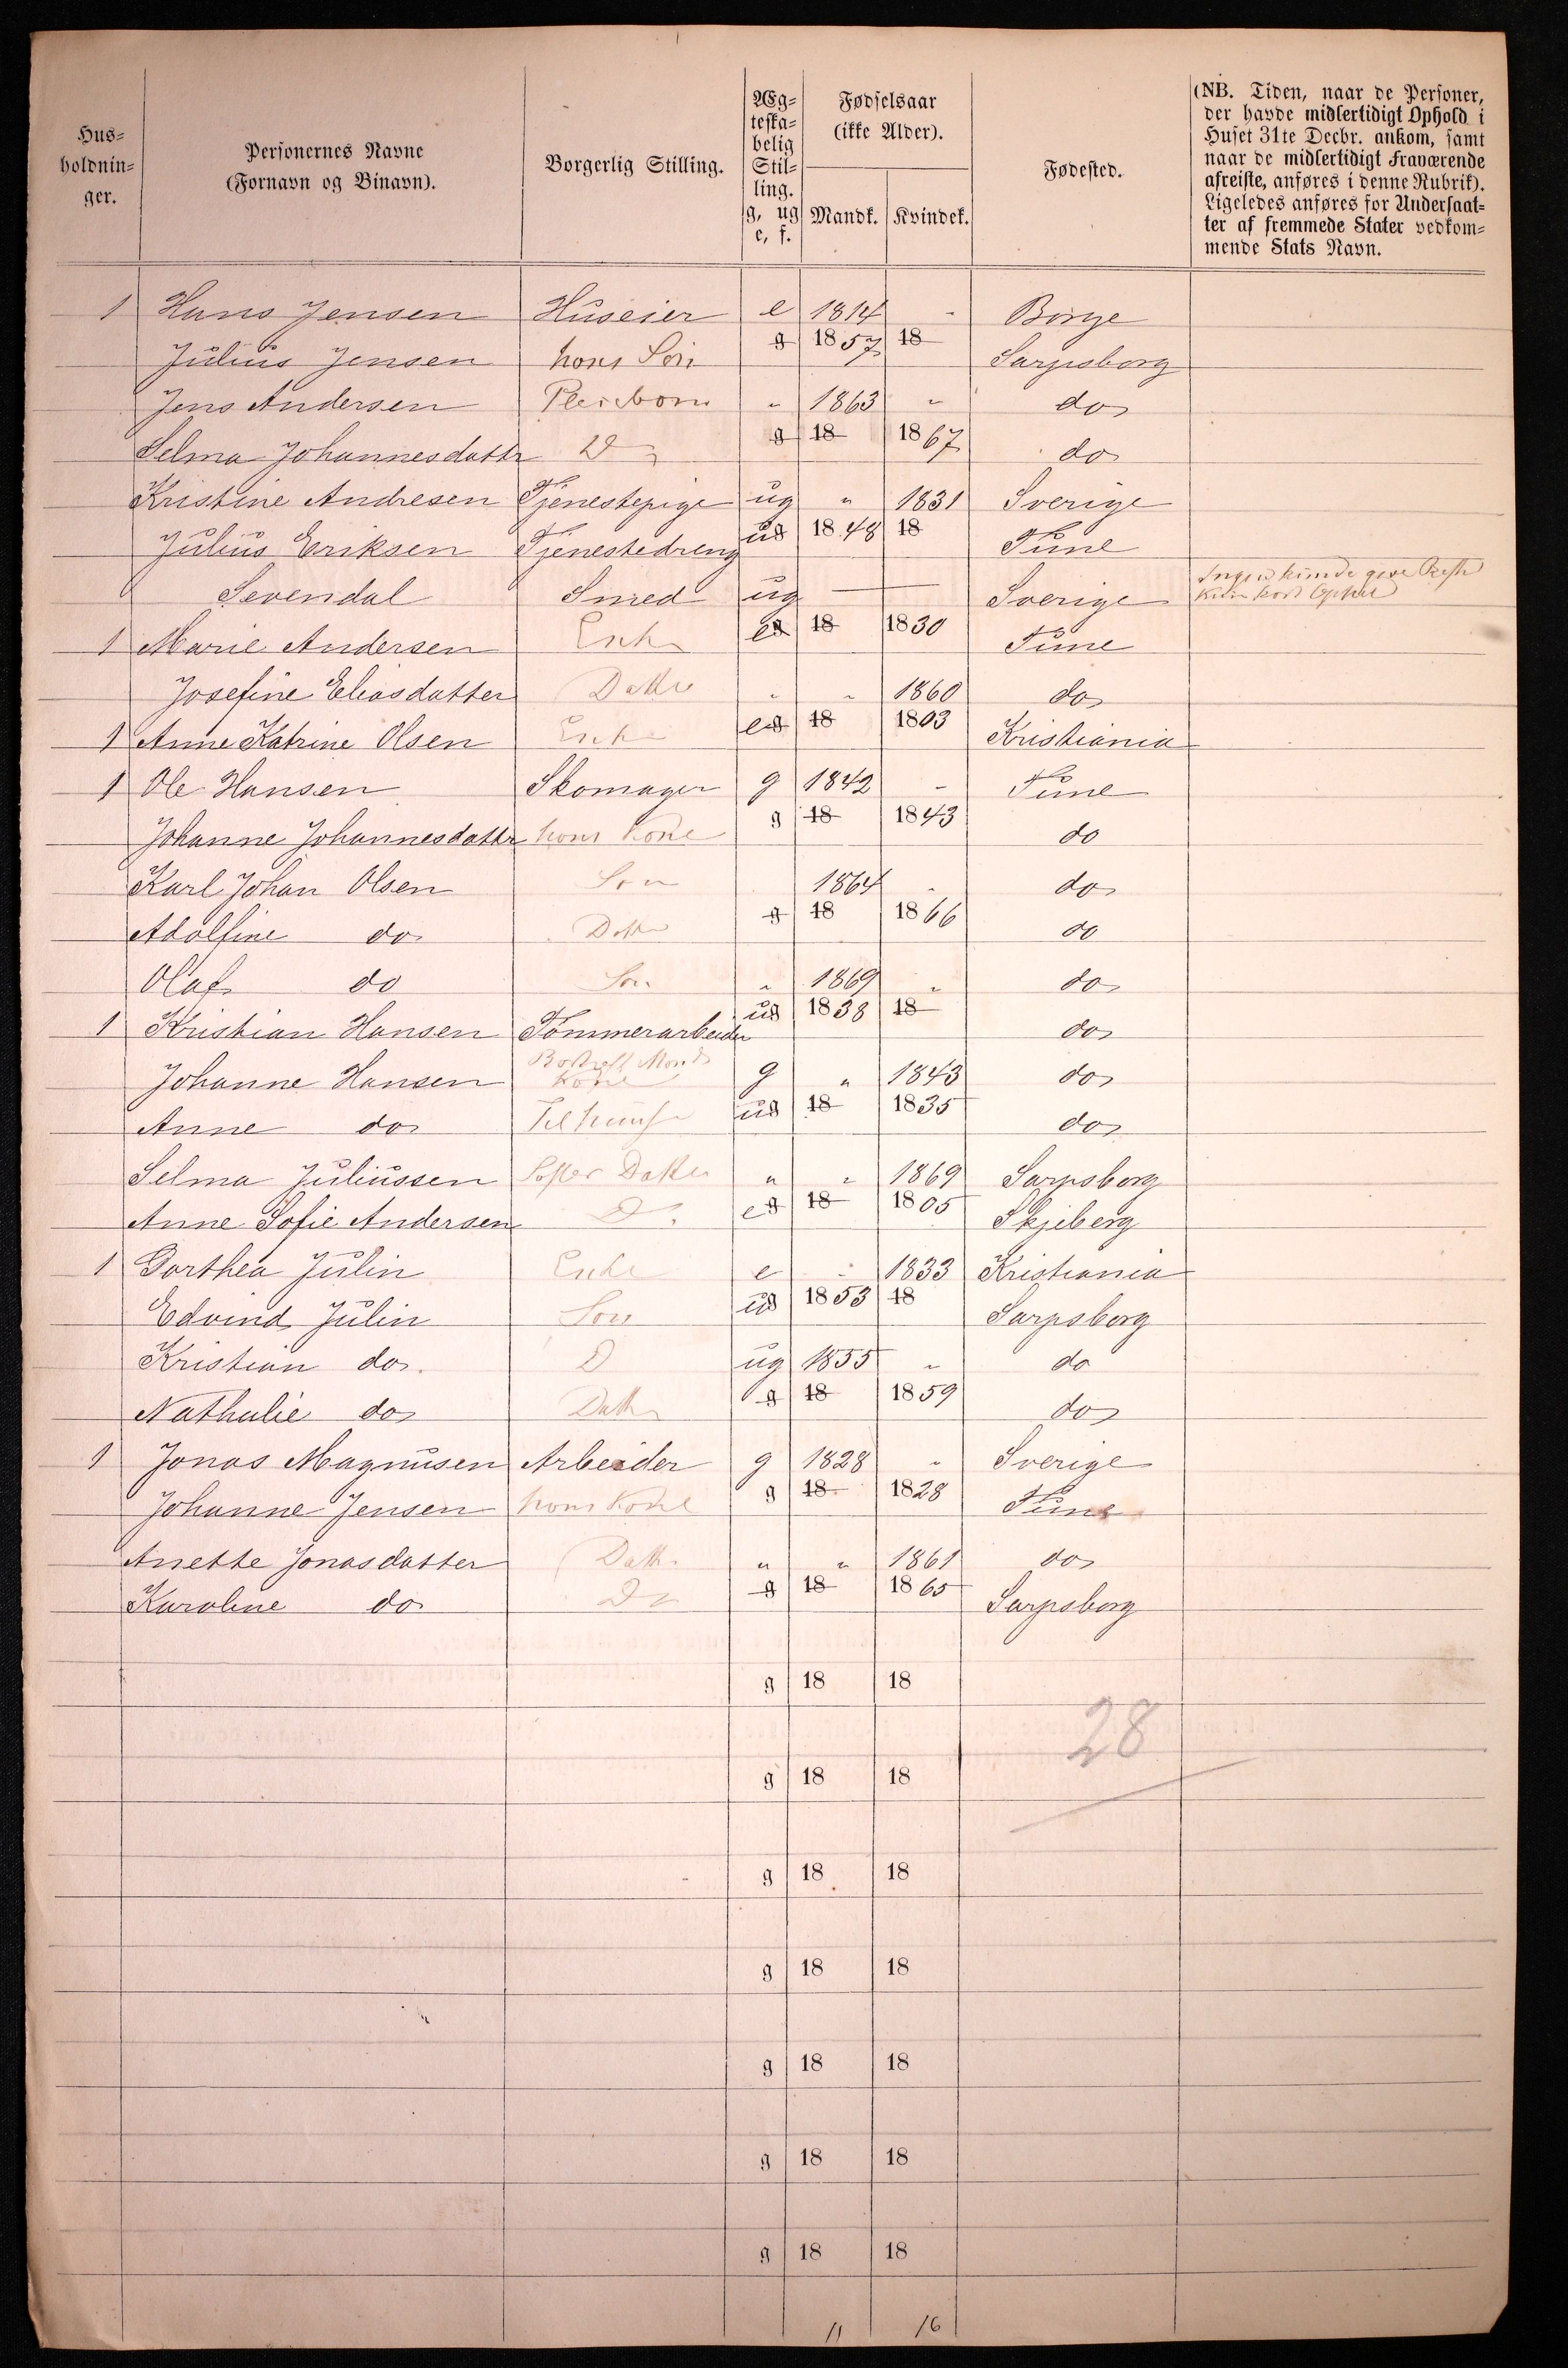 Hus=
holdnin=
ger.
Personernes Navne
(Fornavn og Binavn).
Borgerlig Stilling.
Æg=
teska=
belig
Stil=
ling.
g, ug
e, f.
Fødselsaar
(ikke Alder).
Mandk. Kvindek.
Fødested.
(NB. Tiden, naar de Personer,
der havde midlertidigt Ophold i
Huset 31te Decbr. ankom, samt
naar de midlertidigt Fraværende
afreiste, anføres i denne Rubrik).
Ligeledes anføres for Undersaat=
ter af fremmede Stater vedkom=
mende Stats Navn.
1 Hans Jensen Huseier e 1814 - Borge
Julius Jensen hans Søn g 1857 18 Sarpsborg
Jens Andersen Pleiebarn " 1863 " do
Selma Johannesdattr D g 18 1867 do
Kristine Andresen Tjenestepige ug " 1831 Sverige
Julius Eriksen Tjenestedreng ug 1848 18 Tune
Sevendal Smed ug — Sverige Ingen kunde give
1 Marie Andersen Enke eg 18 1830 Tune
Josefine Eliasdatter Datter " " 1860 do
1 Anne Katrine Olsen Enke eg 18 1803 Kristiania
1 Ole Hansen Skomager g 1842 - Tune
Johanne Johannesdattr hans Kone g 18 1843 do
Karl Johan Olsen Søn 1864 - do
Adolfine do Datter g 18 1866 do
Olaf do Søn " 1869 " do
1 Kristian Hansen Tømmerarbeider ug 1838 18 do
Johanne Hansen Kone g " 1843 do
Anne do ug 18 1835 do
Selma Juliussen Datter " " 1869 Sarpsborg
Anne Sofie Andersen D eg 18 1805 Skjeberg
1 Dorthea Julin Enke e - 1833 Kristiania
Edvind Julin Søn ug 1853 18 Sarpsborg
Kristian do D ug 1855 " do
Nathalie do Datter g 18 1859 do
1 Jonas Magnusen Arbeider g 1828 " Sverige
Johanne Jensen hans Kone g 18 1828 Tune
Anette Jonasdatter Datter " " 1861 do
Karoline do Do g 18 1865 Sarpsborg
g 18 18
28
g 18 18
g 18 18
g 18 18
g 18 18
g 18 18
g 18 18
11 16